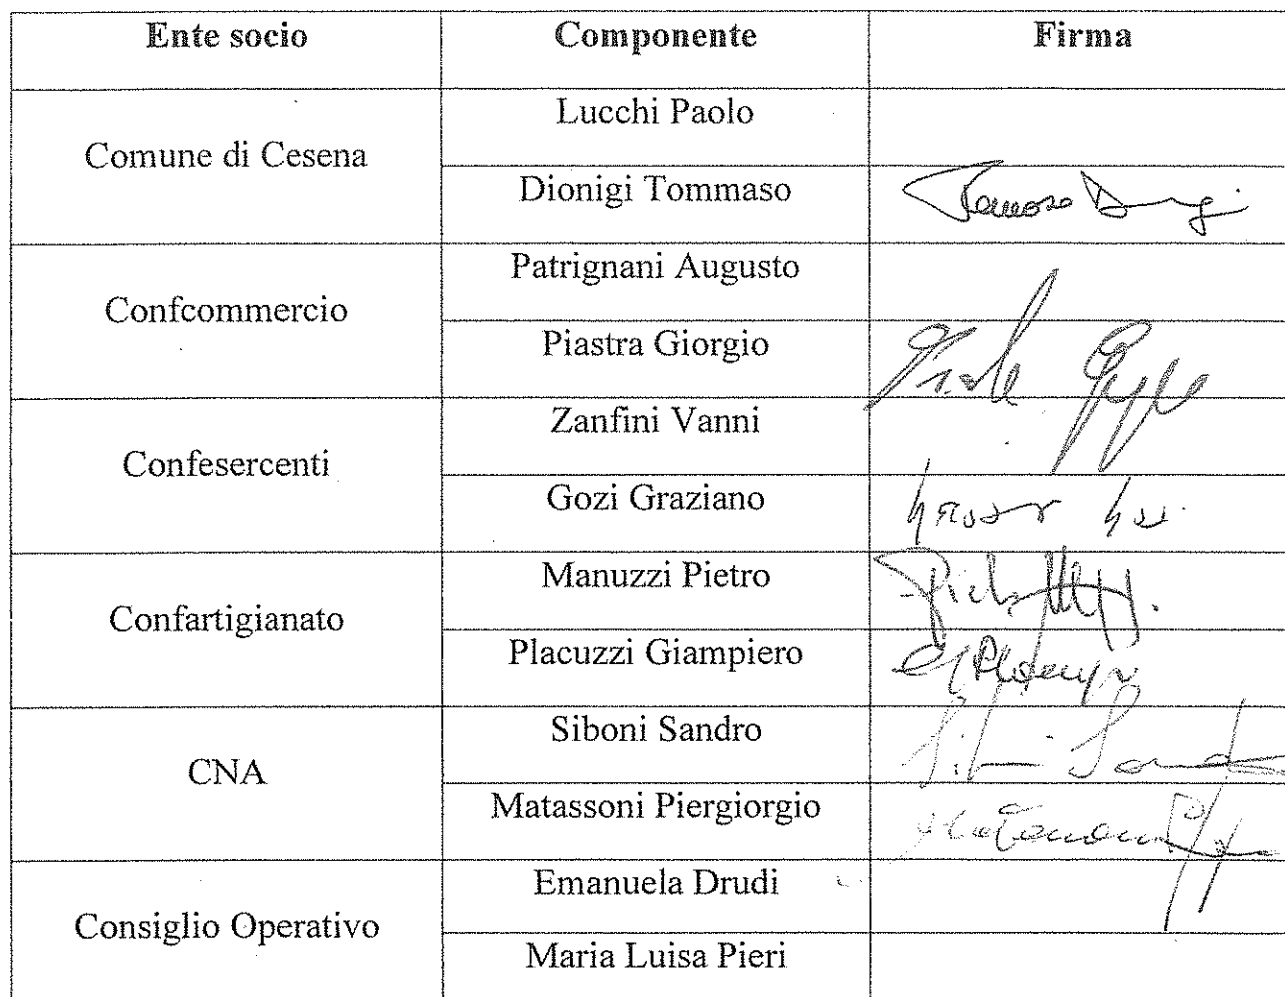 Ente socio Componente Firma
Comune di Cesena
Lucchi Paolo
Dionigi Tommaso
Confcommercio
Patrignani Augusto
Piastra Giorgio
Confesercenti
Zanfini Vanni
Gozi Graziano
Confartigianato
Manuzzi Pietro
Placuzzi Giampiero
CNA
Siboni Sandro
Matassoni Piergiorgio
Consiglio Operativo
Emanuela Drudi
Maria Luisa Pieri